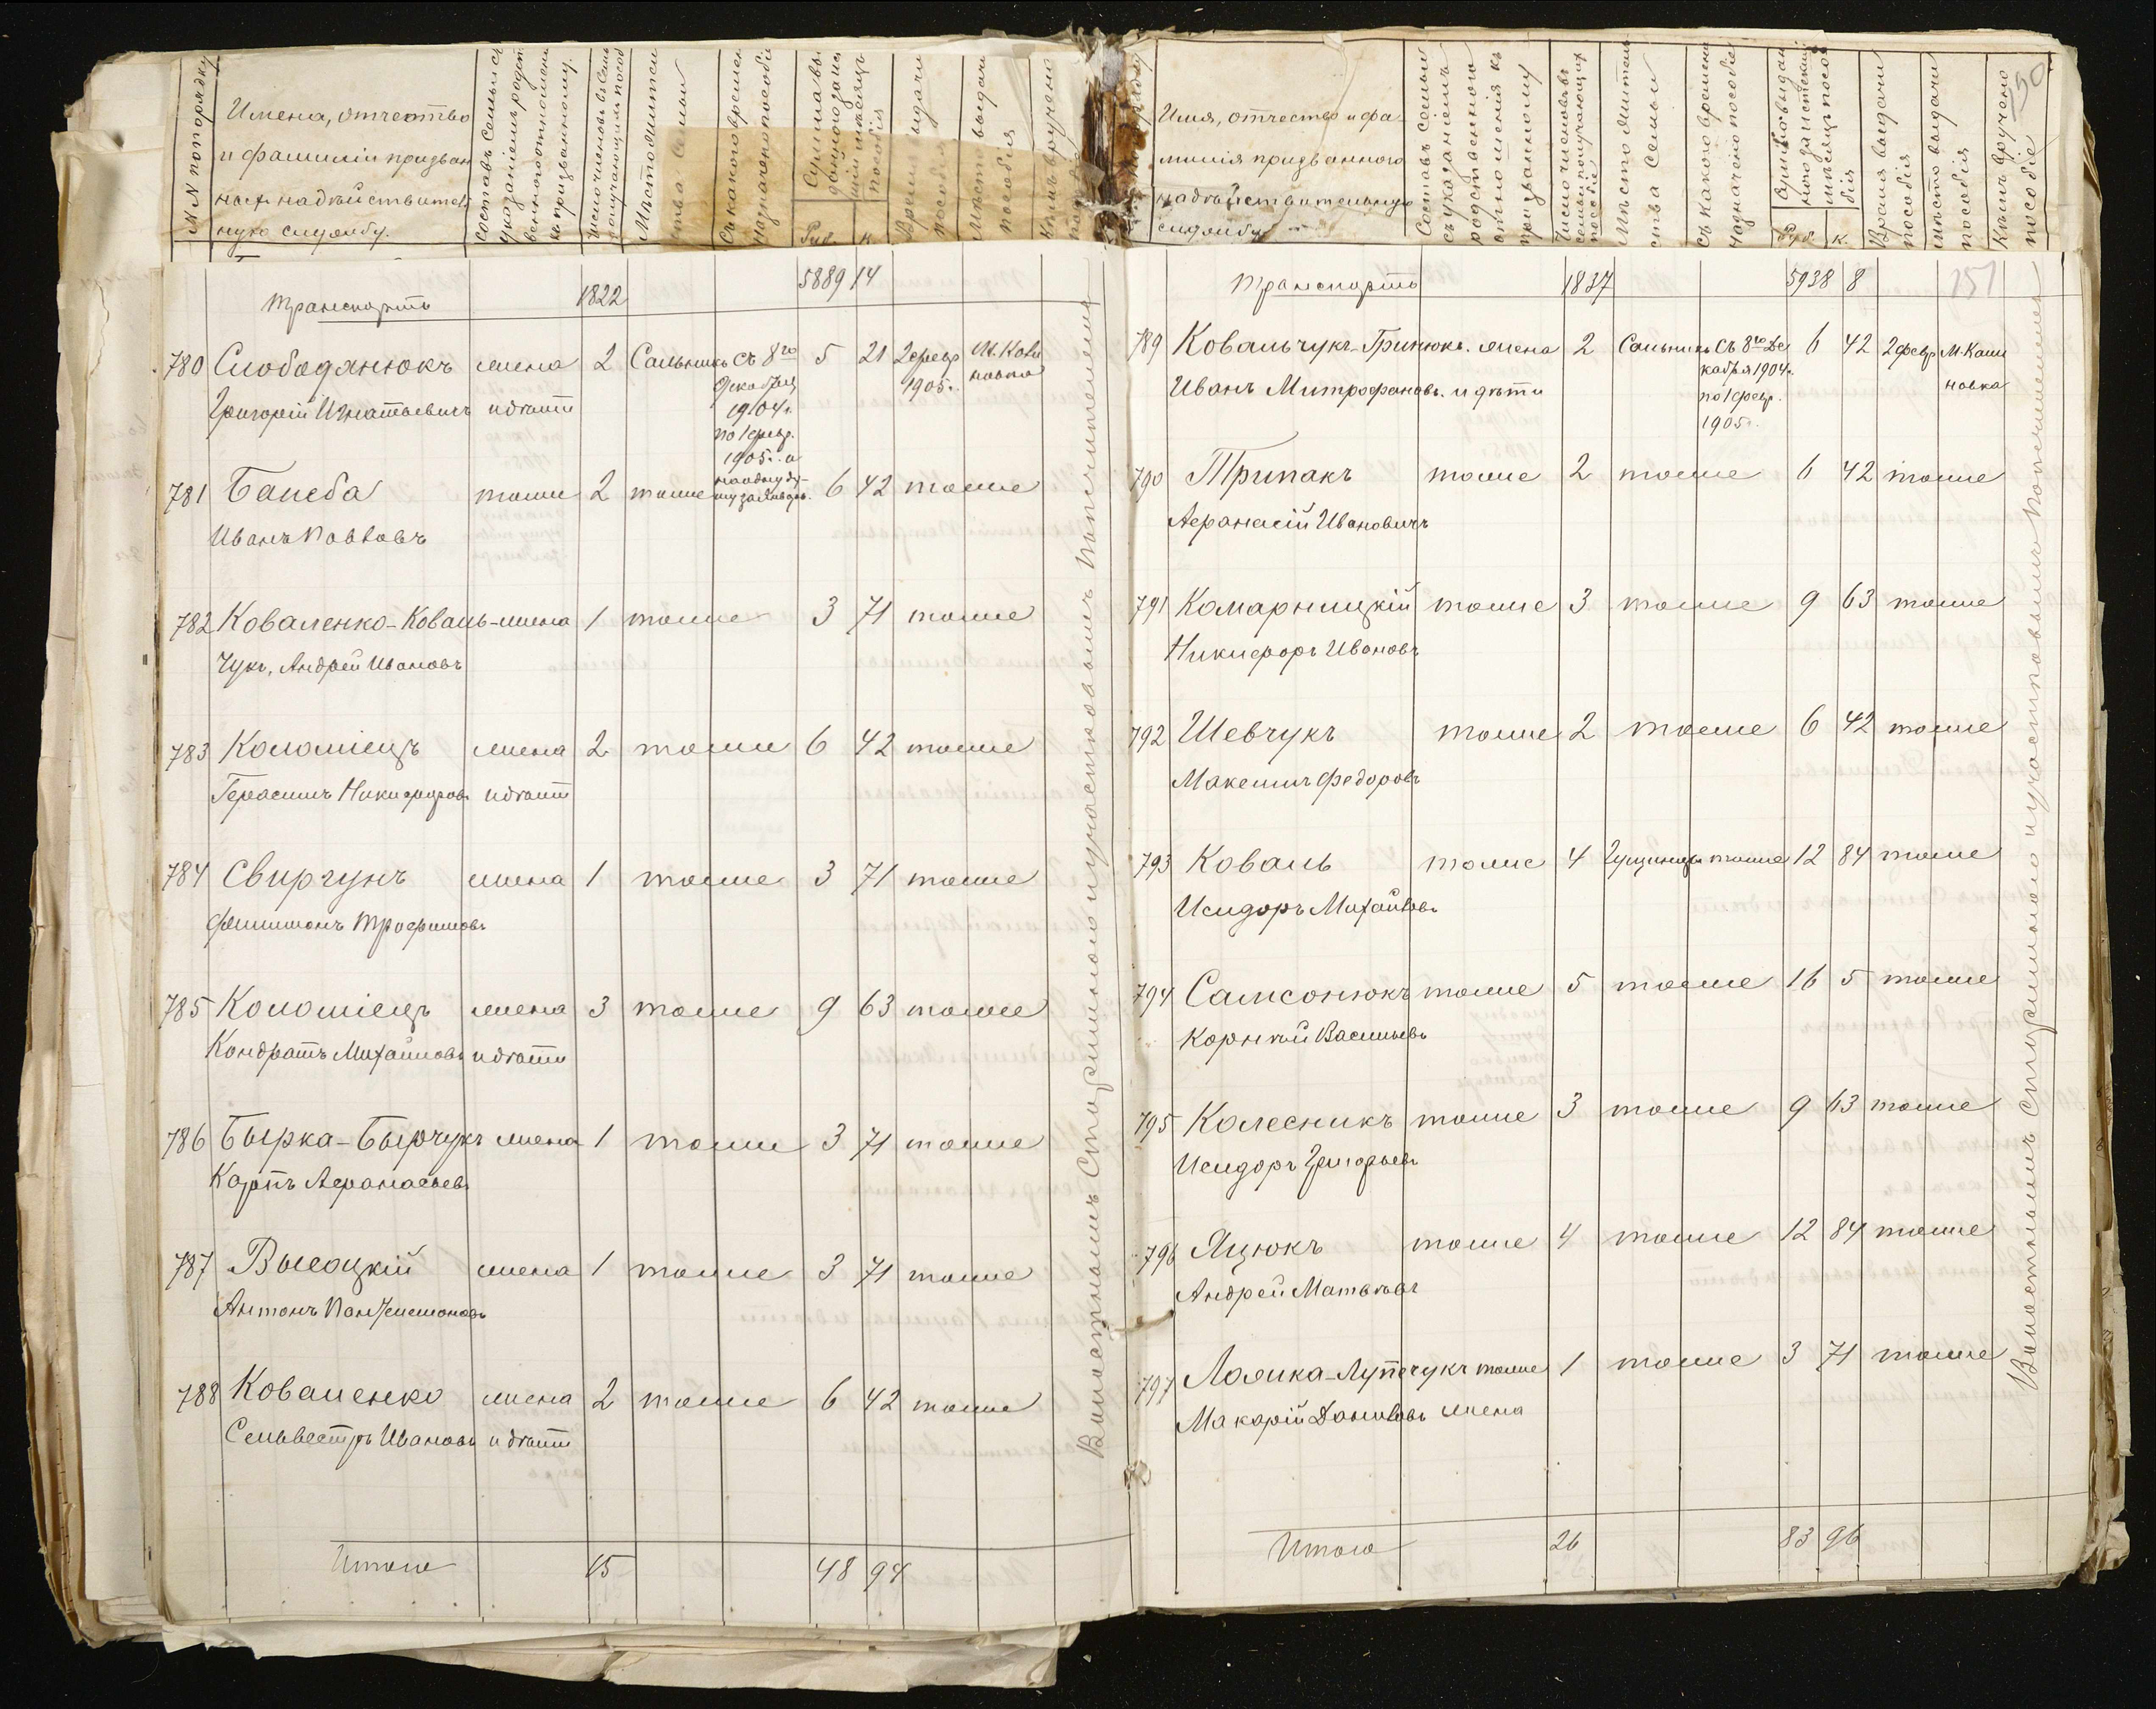 №№ по порядку
Имена, отчество
и фамиліи призван
ных на дѣйствитель
ную службу.
Составъ семьи съ
указаніемъ родст
веннаго отношенія
къ призванному.
Число членовъ въ семь
получающихъ пособ
Мѣсто житель
ства семьи
Съ какого времени
назначено пособіе
Сумма вы
даннаго за ис
шій мѣсяцъ
пособія
Руб. к.
Время выдачи
пособія
Мѣсто выдачи
пособія
Кѣмъ вручено
Транспортъ 1822 5889 14
780 Слободянюкъ жена 2 Сальникъ съ 8го 5 21 2 февр М. Кали
Григорій Игнатьевичъ и дѣти декабря 1905г. новка
1904г.
по 1 февр.
1905г. и
781 Балеба тоже 2 тоже на одну ду- 6 42 тоже
шу за янв
Иванъ Павловъ
782 Коваленко-Коваль- жена 1 тоже 3 71 тоже
чукъ, Андрей Ивановъ
783 Коломіецъ жена 2 тоже 6 42 тоже
Герасимъ Никифоровъ и дѣти
784 Свиргунъ жена 1 тоже 3 71 тоже
Филимонъ Трофимовъ
785 Коломіецъ жена 3 тоже 9 63 тоже
Кондратъ Михайловъ и дѣти
786 Бырка-Бырчукъ жена 1 тоже 3 71 тоже
Карпъ Афанасьевъ
787 Высоцкій жена 1 тоже 3 71 тоже
Антонъ Пантелимоновъ
788 Коваленко жена 2 тоже 6 42 тоже
Сельвестръ Ивановъ и дѣти
Итого 15 48 94
Волостнымъ Старшиною и участковымъ Попечителемъ
Имя, отчество и фа-
милія призваннаго
на дѣйствительную
службу
Составъ семьи
съ указаніемъ
родственнаго
отношенія къ
призванному
Число членовъ въ
семьи получающихъ
пособіе
Мѣсто житель
ства семьи
Съ какого времени
назначено пособіе
Сумма выдан
наго за истекшій
мѣсяцъ посо
бія
Руб. к.
Время выдачи
пособія
Мѣсто выдачи
пособія
Кѣмъ вручено
пособіе
50
151
Транспортъ 1837 5938 8
789 Ковальчукъ-Гринюкъ. жена 2 Сальникъ съ 8го де 6 42 2 февр М. Кали
Иванъ Митрофановъ. и дѣти кабря 1904г. новка
по 1 февр.
1905г.
790 Трипакъ тоже 2 тоже 6 42 тоже
Афанасій Ивановичъ
791 Комарницкій тоже 3 тоже 9 63 тоже
Никифоръ Ивановъ
792 Шевчукъ тоже 2 тоже 6 42 тоже
Максимъ Федоровъ
793 Коваль тоже 4 Гущинцы тоже 12 84 тоже
Исидоръ Михайловъ
794 Самсонюкъ тоже 5 тоже 16 5 тоже
Корнѣй Васильевъ
795 Колесникъ тоже 3 тоже 9 63 тоже
Исидоръ Григорьевъ
796 Яцюкъ тоже 4 тоже 12 84 тоже
Андрей Матвѣевъ
797 тоже 1 тоже 3 71 тоже
Макарій Даниловъ жена
Итого 26 83 96
Волостнымъ Старшиною и участковымъ Попечителемъ